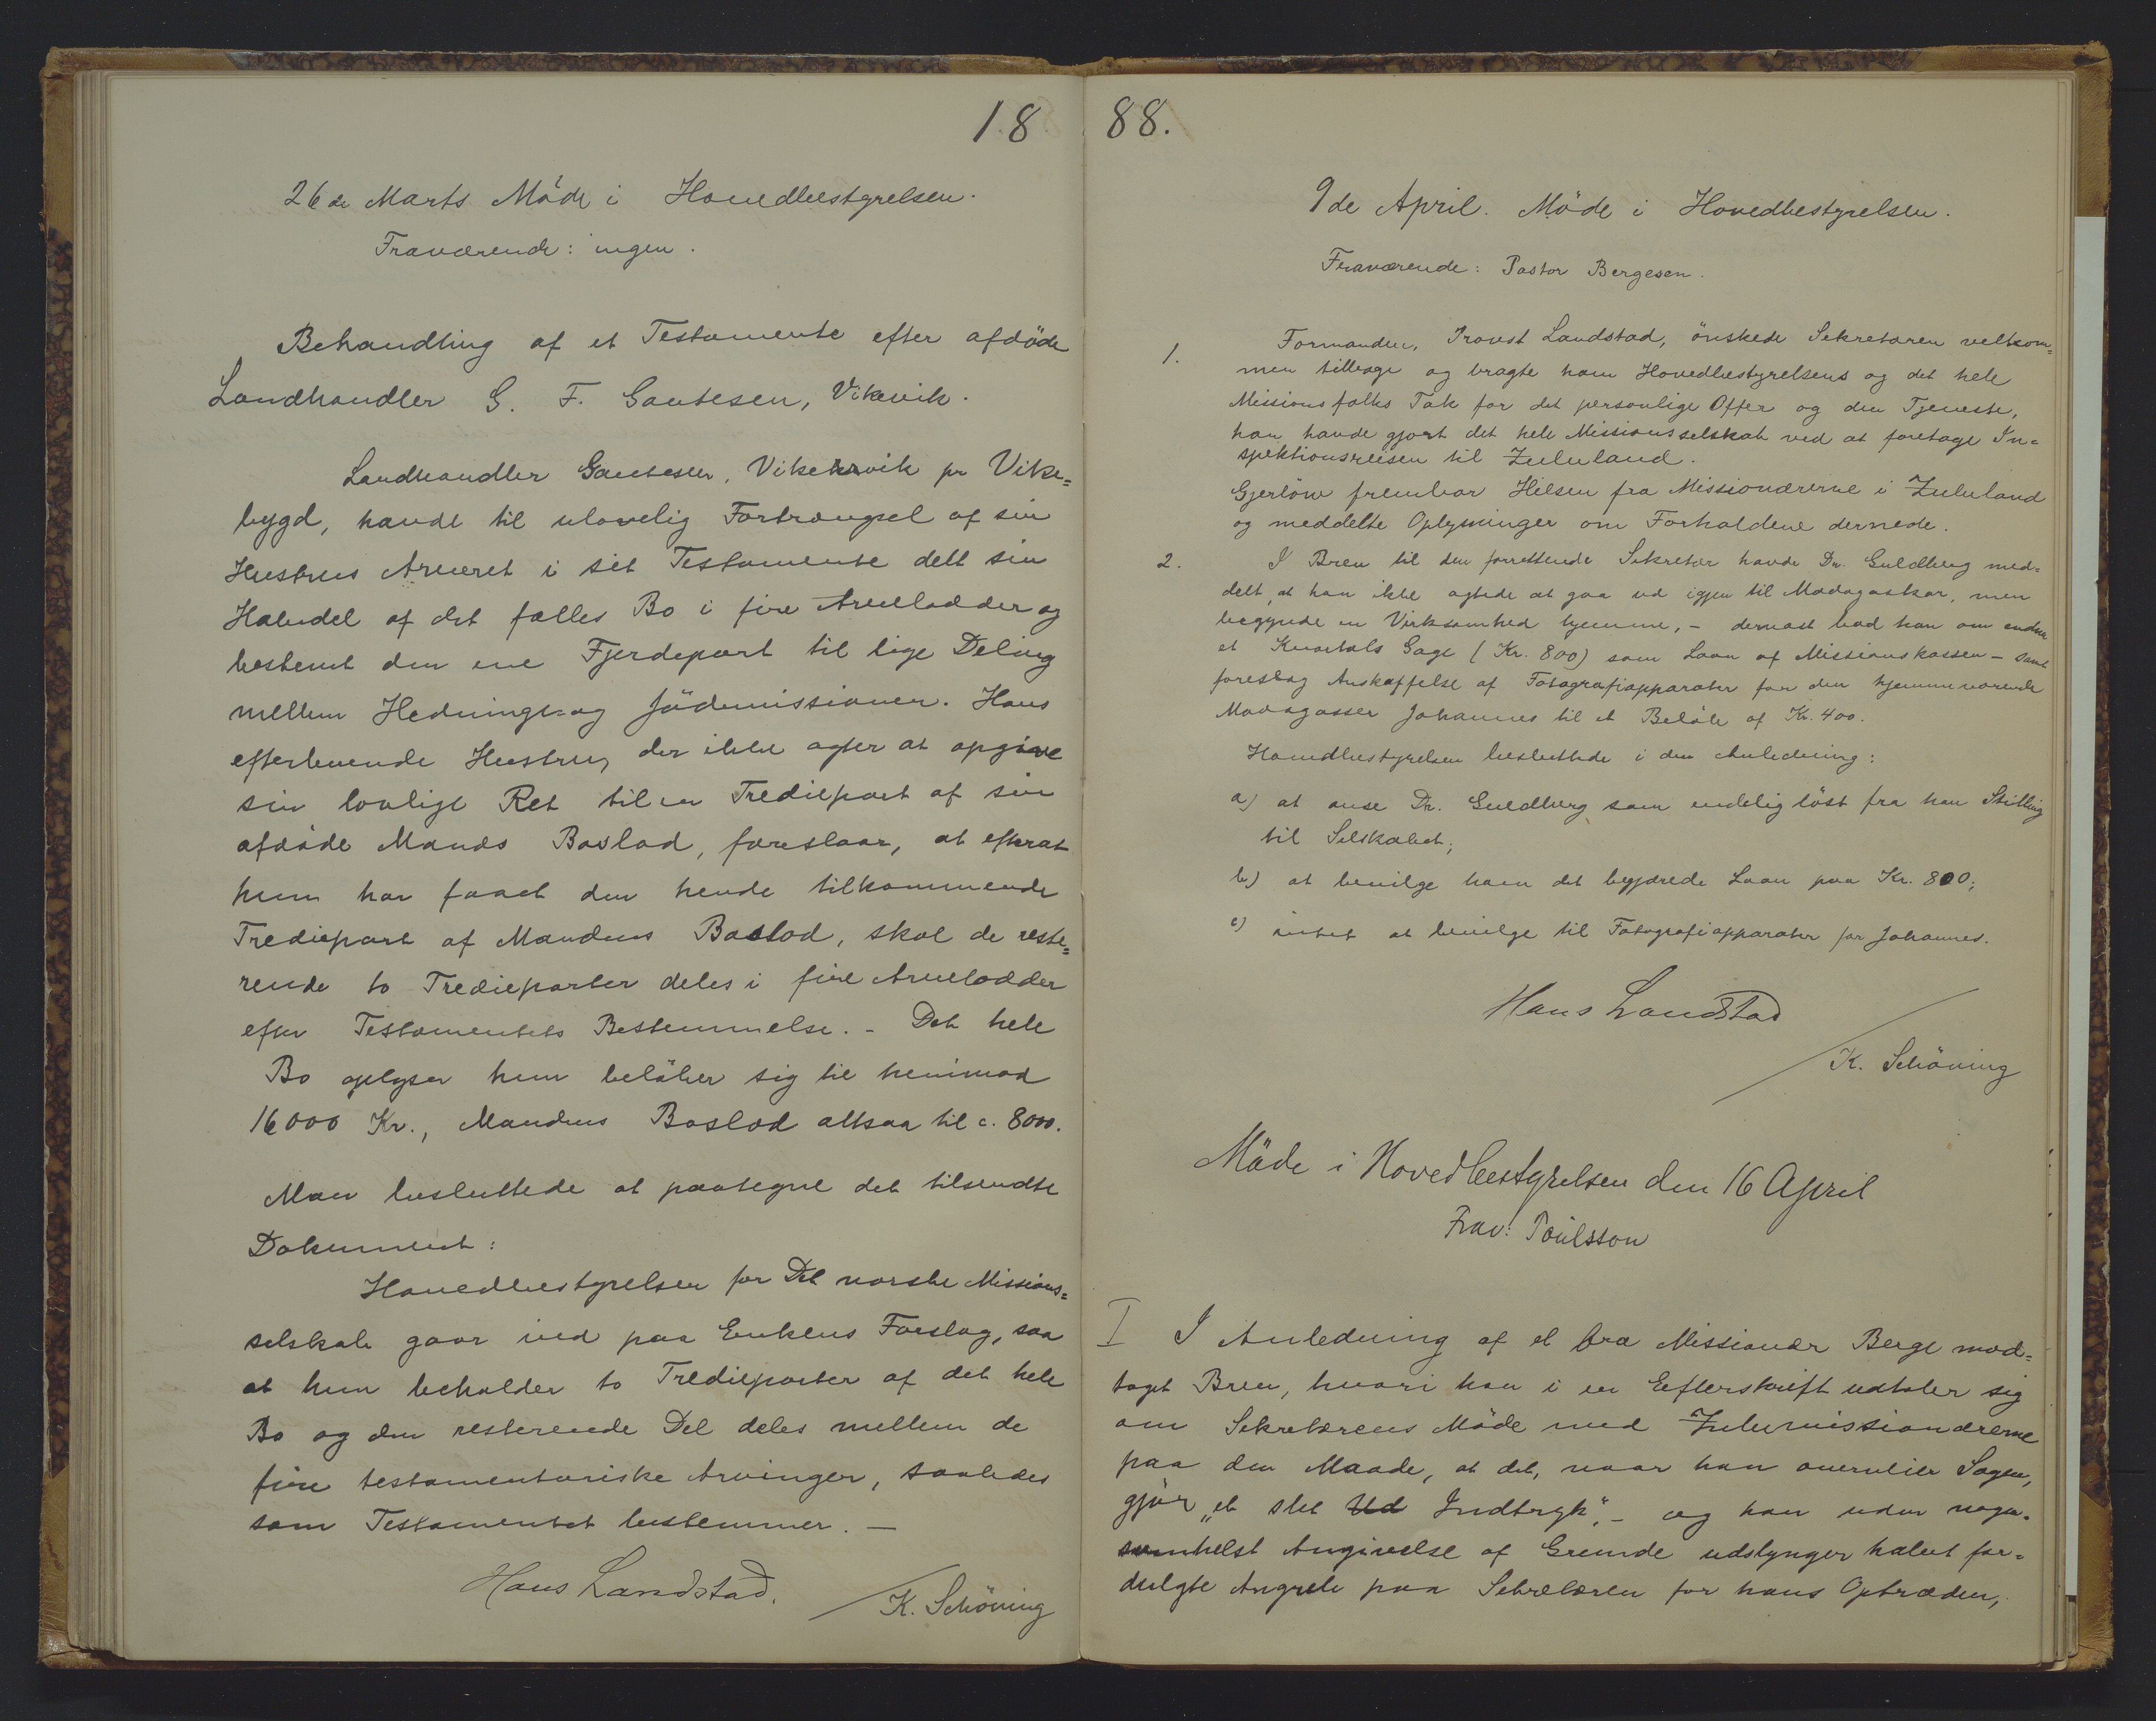 18
26de Marts Möde i Hovedbestyrelsen.
Fraværende: ingen.
Behandling af et Testamente efter afdöde
Landhandler G. F. Gautesen, Vikevik.
Landhandler Gautesen, Vikevik pr Vike=
bygd, havde til ulovelig Fortrængsel af sin
Hustrus Arveret i sit Testamente delt sin
Halvdel af det fælles Bo i fire Arvelodder og
bestemt den ene Fjerdepart til lige Deling
mellem Hednings- og Jödemissionen. Hans
efterlevende Hustru, der ikke agter at opgive
sin lovlige Ret til en Trediepart af sin
afdöde Mands Boslod, foreslaar, at efterat
hun har faaet den hende tilkommende
Trediepart af Mandens Boslod, skal de reste=
rende to Tredieparter deles i fire Arvelodder
efter Testamentets Bestemmelse. - Det hele
Bo oplyser hun belöber sig til henimod
16000 Kr., Mandens Boslod altsaa til c. 8000.
Man besluttede at paategne det tilsendte
Dokument:
Hovedbestyrelsen for Det norske Missions=
selskab gaar ind paa Enkens Forslag, saa
at hun beholder to Tredieparter af det hele
Bo og den resterende Del deles mellem de
fire testamentariske Arvinger, saaledes
som Testamentet bestemmer. —
Hans Landstad.
K. Schöning
88.
9de April. Möde i Hovedbestyrelsen.
Fraværende: Pastor Bergesen.
1. Formanden, Provst Landstad, önskede Sekretæren velkom=
men tilbage og bragte ham Hovedbestyrelsens og det hele
Missionsfolks Tak for det personlige Offer og den Tjeneste,
han havde gjort det hele Missionsselskab ved at foretage In=
spektionsreisen til Zululand.
Gjerløw frembar Hilsen fra Missionærerne i Zululand
og meddelte Oplysninger om Forholdene dernede.
2. I Brev til den forrettende Sekretær havde Dr. Guldberg med=
delt, at han ikke agtede at gaa ud igjen til Madagaskar, men
begynde en Virksomhed hjemme, - dernæst bad han om endnu
et Kvartals Gage (Kr. 800) som Laan af Missionskassen - samt
foreslog Anskaffelse af Fotografiapparater for den hjemmeværende
Madagasser Johannes til et Belöb af Kr. 400.
Hovedbestyrelsen besluttede i den Anledning:
a) at anse Dr. Guldberg som endelig löst fra han Stilling
til Selskabet;
b) at bevilge ham det begjærede Laan paa Kr. 800;
c) intet at bevilge til Fotografiapparater for Johannes.
Hans Landstad
K. Schöning
Möde i Hovedbestyrelsen den 16 April
Frav: Poulsson
I I Anledning af et fra Missionær Berge mod=
taget Brev, hvori han i en Efterskrift udtaler sig
om Sekretærens Möde med Zulumissionærerne
paa den Maade, at det, naar han overveier Sagen,
gjör „et slet Ud Indtryk", - og han uden nogen=
somhelst Angivelse af Grunde udslynger halvt for=
dulgte Angreb paa Sekretæren for hans Optræden,